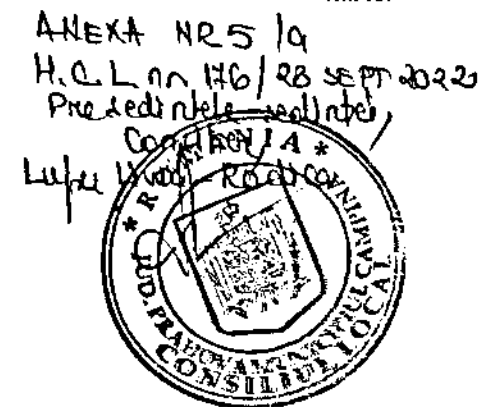 ANEXA NR 5 /a
H.C.L nr 176/28 SEPT 2022
Președintele ședinței
Consilier
Lupu Rodica
* ROMÂNIA *
JUD. PRAHOVA MUNICIPIUL CAMPINA
CONSILIUL LOCAL